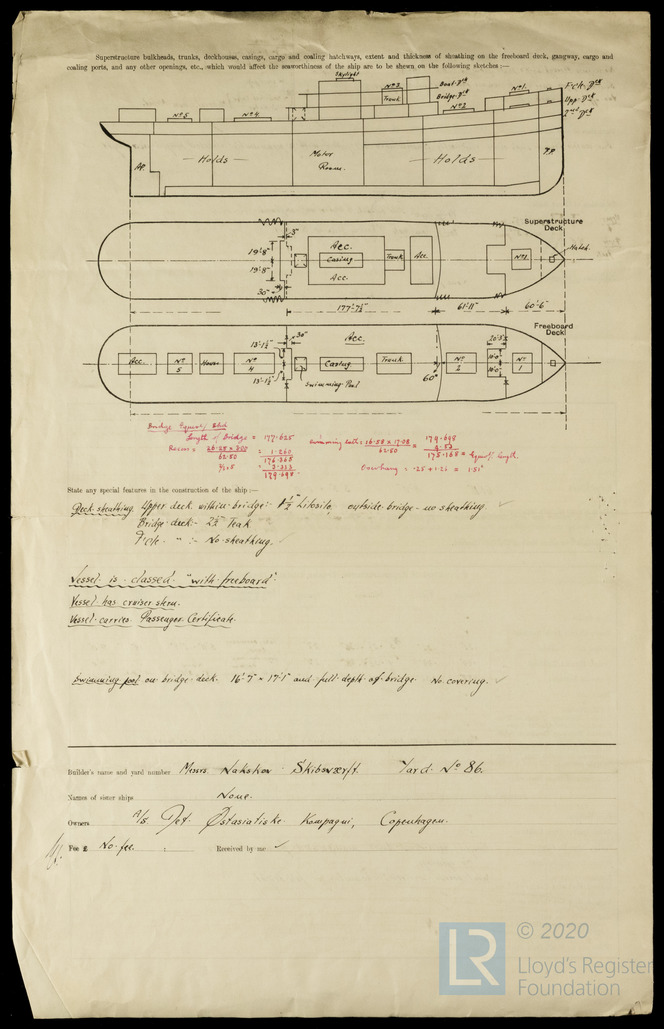 Superstructure bulkheads, trunks, deckhouses, casings, cargo and coaling hatchways, extent and thickness of sheathing on the freeboard deck, gangway, cargo and
coaling ports, and any other openings, etc., which would affect the seaworthiness of the ship are to be shewn on the following sketches :—
Skylight
Nº 3 Boat Dk Nº 1 Fcle Dk
Trunk Bridge Dk Upp. Dk
Nº 5 Nº 4 Nº 2 2nd Dk
A.P. Holds Motor Room Holds F.P.
Superstructure
Deck
3"
19'-8" Acc. Hatch
Casing Trunk Acc. Nº 1
19'-8" Acc.
30"
177'-7½" 61'-11" 60'-6"
Freeboard
Deck
13'-1½" 30" 20'-5"
Acc. Nº 5 House Nº 4 Casing Trunk Nº 2 Nº 1
13'-1½" Swimming Pool 60"
Bridge Equal'n Blkd
Length of Bridge = 177.625
Swimming bath = 16.58 × 17.08 / 62.50
179.698
4.53
175.168 = Equal'n length.
Recess = 26.25 × 3.00 / 62.50 = 1.260
176.365
= 3.333
179.698
Overhang = .25 + 1.26 = 1.51'
State any special features in the construction of the ship :—
Deck sheathing. Upper deck within bridge:- 1½" Litosilo, outside bridge - no sheathing.
Bridge deck:- 2½" Teak
Fcle - " :- No sheathing.
Vessel is classed "with freeboard"
Vessel has cruiser stern.
Vessel carries Passenger Certificate.
Swimming pool on bridge deck 16'-7" × 17'-1" and full depth of bridge. No covering.
Builder's name and yard number Messrs Nakskov Skibsværft. Yard Nº 86.
Names of sister ships None.
Owners A/S. Det Østasiatiske Kompagni, Copenhagen.
Fee £ No fee. : Received by me
© 2020
LR
Lloyd's Register
Foundation